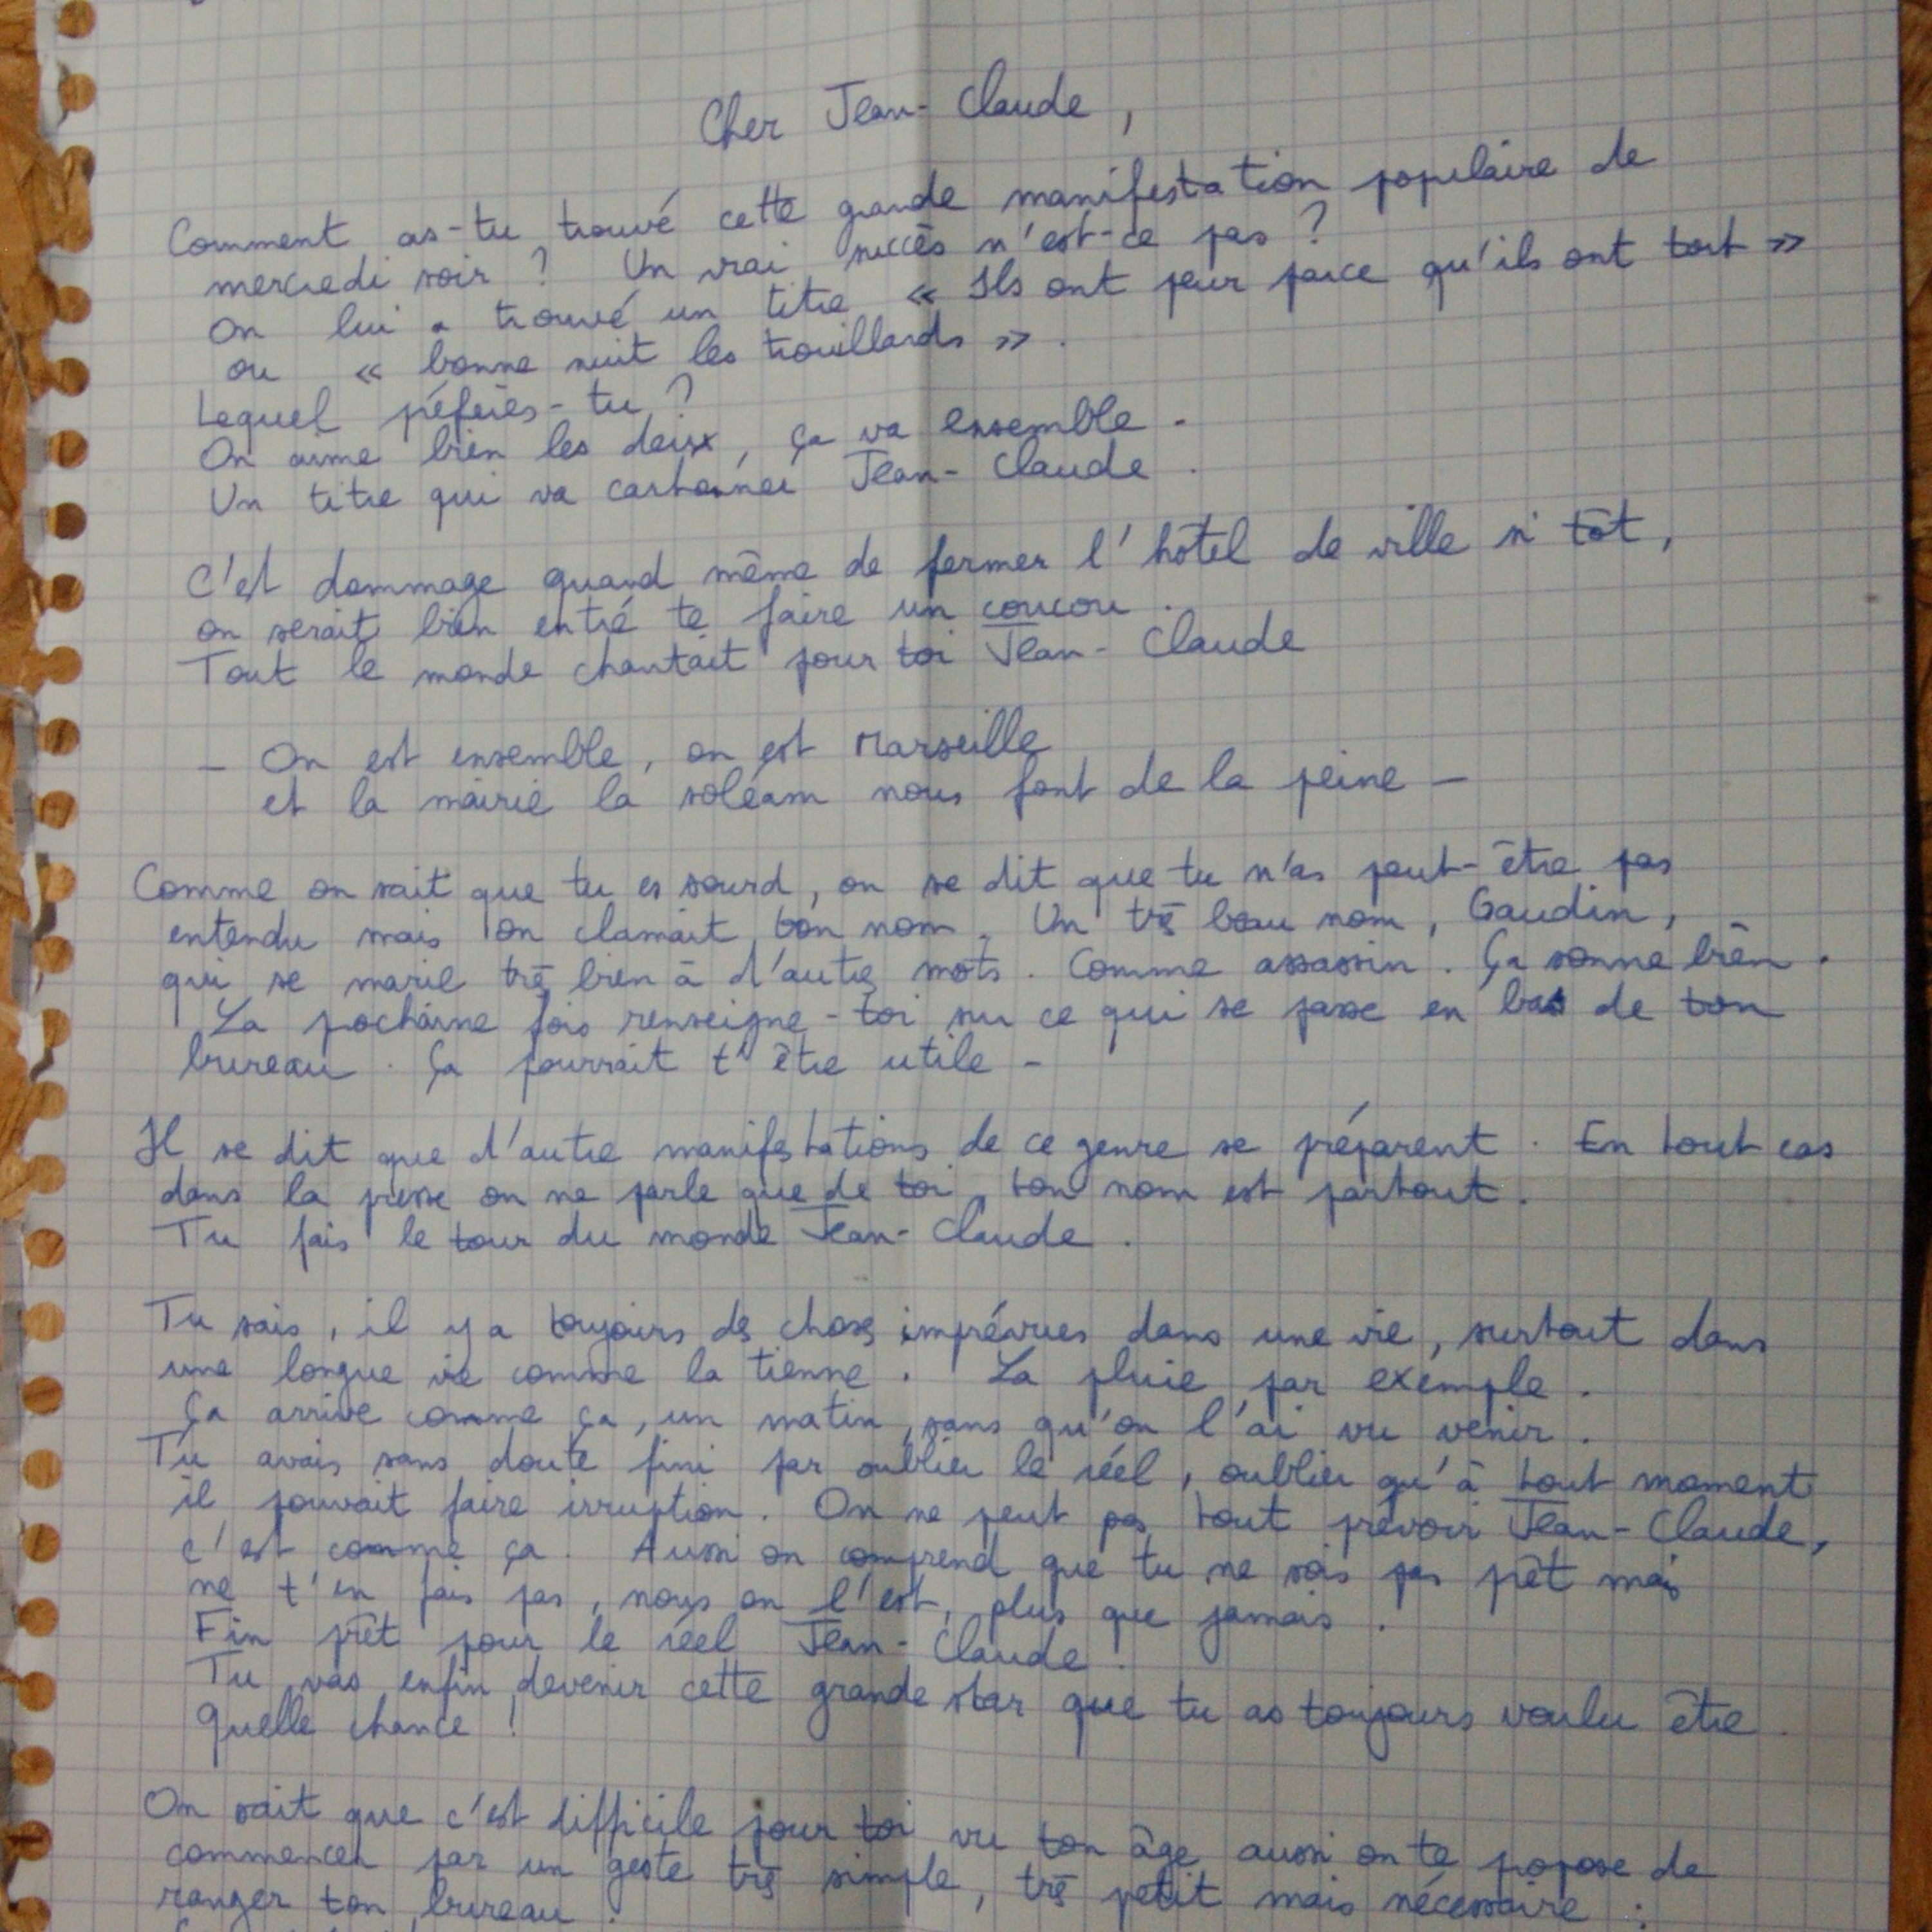 Cher Jean-Claude,
Comment as-tu trouvé cette grande manifestation populaire de
mercredi soir ? Un vrai succès n'est-ce pas ?
On lui a trouvé un titre « Ils ont peur parce qu'ils ont tort »
ou « bonne nuit les trouillards ».
Lequel préfères-tu ?
On aime bien les deux, ça va ensemble.
Un titre qui va cartonner Jean-Claude.
C'est dommage quand même de fermer l'hôtel de ville si tôt,
on serait bien entré te faire un coucou.
Tout le monde chantait pour toi Jean-Claude
- On est ensemble, on est Marseille
et la mairie la soléam nous font de la peine -
Comme on sait que tu es sourd, on se dit que tu n'as peut-être pas
entendu mais on clamait ton nom. Un très beau nom, Gaudin,
qui se marie très bien à d'autres mots. Comme assassin. Ça sonne bien.
La prochaine fois renseigne-toi sur ce qui se passe en bas de ton
bureau. Ça pourrait t'être utile -
Il se dit que d'autre manifestations de ce genre se préparent. En tout cas
dans la presse on ne parle que de toi, ton nom est partout.
Tu fais le tour du monde Jean-Claude.
Tu sais, il y a toujours des choses imprévues dans une vie, surtout dans
une longue vie comme la tienne. La pluie par exemple.
Ça arrive comme ça, un matin, sans qu'on l'ai vu venir.
Tu avais sans doute fini par oublier le réel, oublier qu'à tout moment
il pouvait faire irruption. On ne peut pas tout prévoir Jean-Claude,
c'est comme ça. Aussi on comprend que tu ne sois pas prêt mais
ne t'en fais pas, nous on l'est, plus que jamais.
Fin prêt pour le réel Jean-Claude !
Tu vas enfin devenir cette grande star que tu as toujours voulu être.
Quelle chance !
On sait que c'est difficile pour toi vu ton âge aussi on te propose de
commencer par un geste très simple, très petit mais nécessaire :
ranger ton bureau.